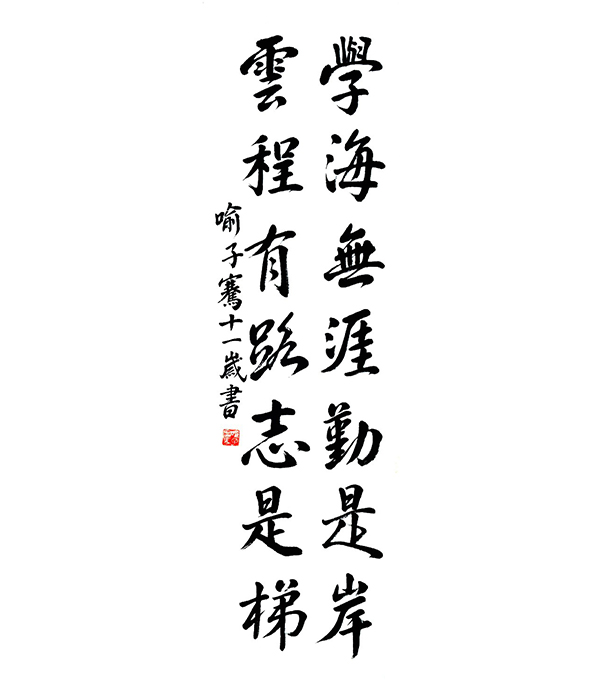 學海無涯勤是岸
雲程有路志是梯
喻子騫十一歲書